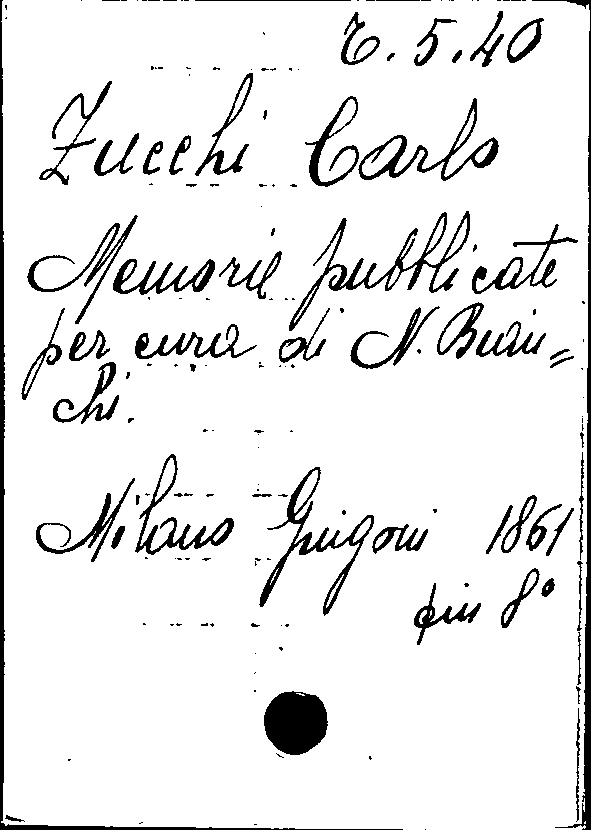 E. 5.40
Zucchi Carlo
Memorie pubblicate
per cura di N. Bian=
chi.
Milano Guigoni 1861
in 8°